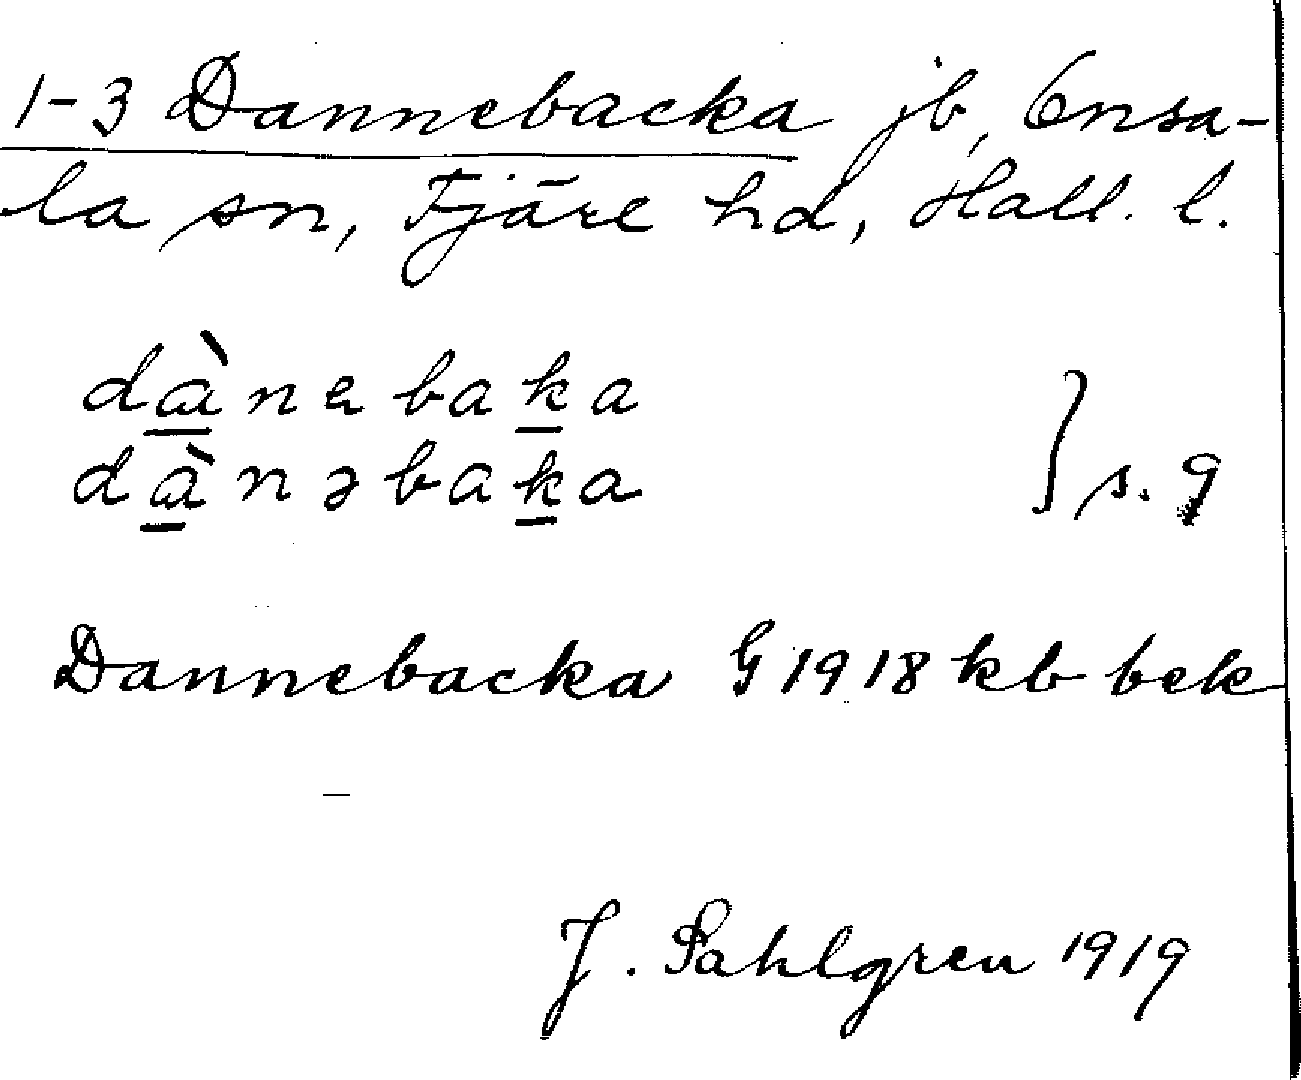 1-3 Dannebacka jb, Onsa-
la sn, Fjäre hd, Hall. l.
dànebaka
dànəbaka } s. q
Dannebacka G 1918 kb bek
J. Sahlgren 1919